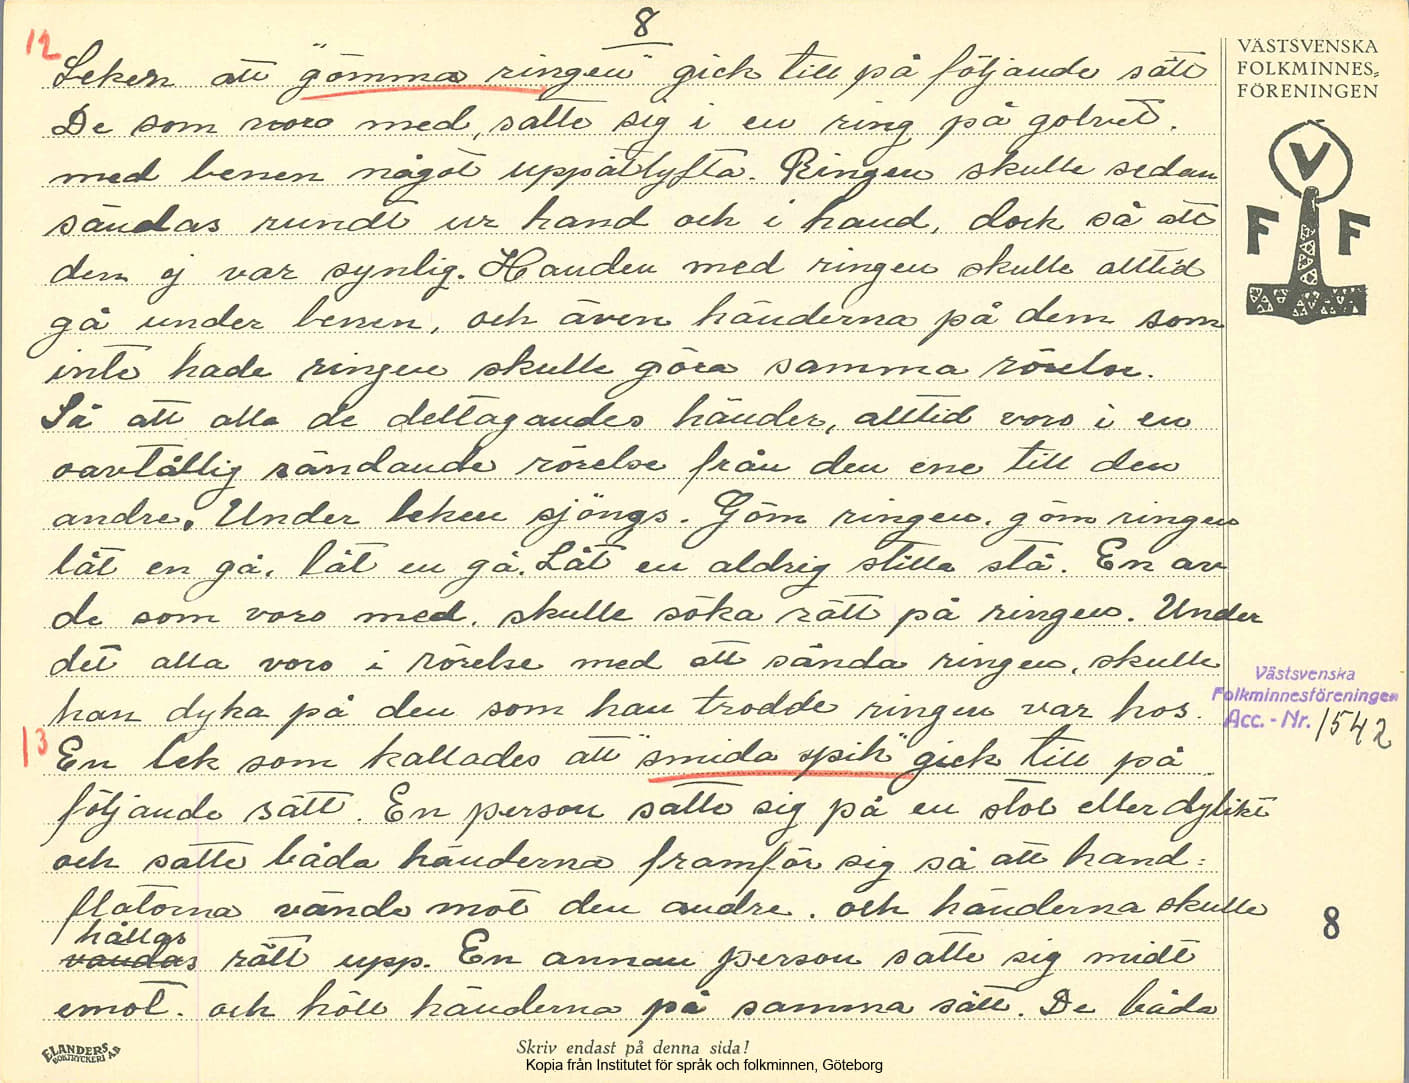 8
12
Leken att "gömma ringen" gick till på följande sätt
De som voro med, satte sig i en ring på golvet.
med benen något uppåtlyfta. Ringen skulle sedan
sändas rundt ur hand och i hand, dock så att
den ej var synlig. Handen med ringen skulle alltid
gå under benen, och även händerna på dem som
inte hade ringen skulle göra samma rörelse.
Så att alla de deltagandes händer, alltid voro i en
oavtållig sändande rörelse från den ene till den
andre. Under leken sjöngs. Göm ringen. göm ringen
låt en gå. låt en gå. Låt en aldrig stilla stå. En av
de som voro med. skulle söka rätt på ringen. Under
det alla voro i rörelse med att sända ringen. skulle
han dyka på den som han trodde ringen var hos.
13
En lek som kallades att "smida spik" gick till på
följande sätt. En person satte sig på en stol eller dylikt
och satte båda händerna framför sig så att hand=
flatorna vände mot den andre. och händerna skulle
hållas
vandas rätt upp. En annan person satte sig midt
emot. och höll händerna på samma sätt. De båda
VÄSTSVENSKA
FOLKMINNES=
FÖRENINGEN
V
F F
Västsvenska
Folkminnesföreningen
Acc. - Nr. 1542
8
ELANDERS
BOKTRYCKERI AB
Skriv endast på denna sida!
Kopia från Institutet för språk och folkminnen, Göteborg